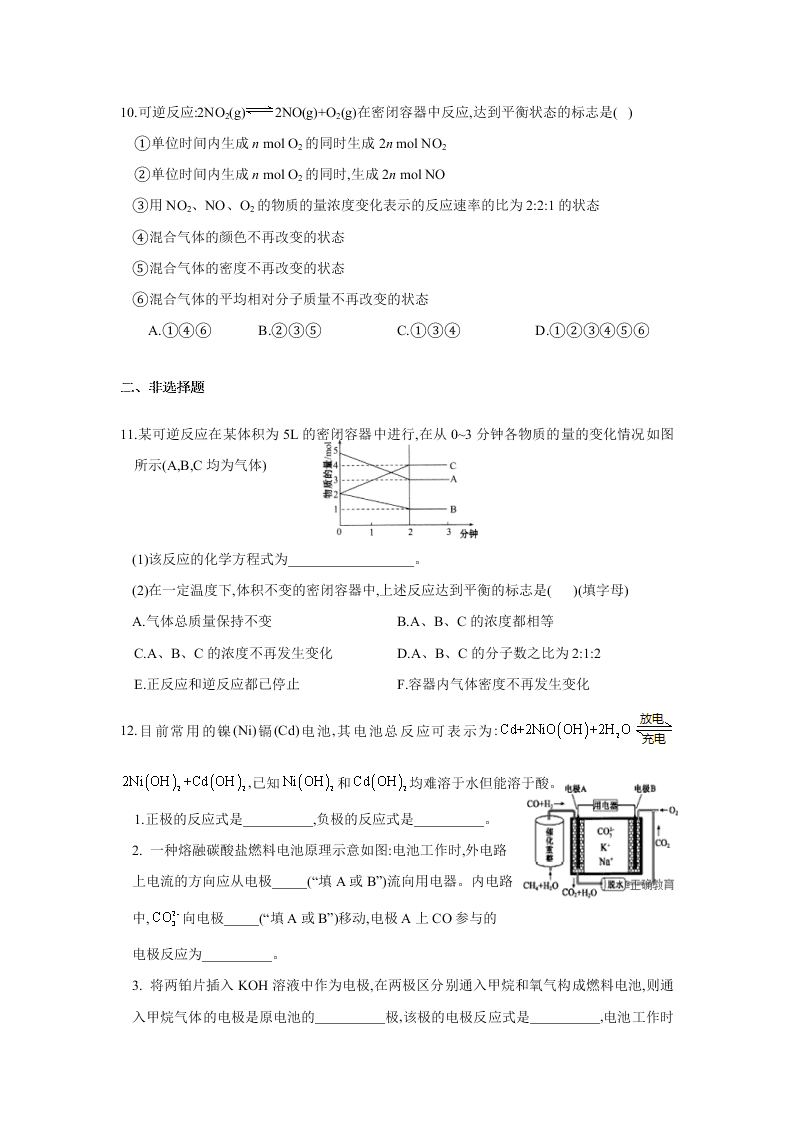 10.可逆反应:2NO₂(g)⇌2NO(g)+O₂(g)在密闭容器中反应,达到平衡状态的标志是(   )
①单位时间内生成 n mol O₂ 的同时生成 2n mol NO₂
②单位时间内生成 n mol O₂ 的同时,生成 2n mol NO
③用 NO₂、NO、O₂ 的物质的量浓度变化表示的反应速率的比为 2:2:1 的状态
④混合气体的颜色不再改变的状态
⑤混合气体的密度不再改变的状态
⑥混合气体的平均相对分子质量不再改变的状态
A.①④⑥ B.②③⑤ C.①③④ D.①②③④⑤⑥
二、非选择题
11.某可逆反应在某体积为 5L 的密闭容器中进行,在从 0~3 分钟各物质的量的变化情况如图
所示(A,B,C 均为气体)
物质的量/mol
5
4
3
2
1
C
A
B
0 1 2 3 分钟
(1)该反应的化学方程式为__________________。
(2)在一定温度下,体积不变的密闭容器中,上述反应达到平衡的标志是(      )(填字母)
A.气体总质量保持不变 B.A、B、C 的浓度都相等
C.A、B、C 的浓度不再发生变化 D.A、B、C 的分子数之比为 2:1:2
E.正反应和逆反应都已停止 F.容器内气体密度不再发生变化
12.目前常用的镍(Ni)镉(Cd)电池,其电池总反应可表示为:Cd+2NiO(OH)+2H₂O 放电⇌充电
2Ni(OH)₂+Cd(OH)₂,已知 Ni(OH)₂ 和 Cd(OH)₂ 均难溶于水但能溶于酸。
1.正极的反应式是__________,负极的反应式是__________。
2. 一种熔融碳酸盐燃料电池原理示意如图:电池工作时,外电路
上电流的方向应从电极_____(“填 A 或 B”)流向用电器。内电路
中,CO₃²⁻向电极_____(“填 A 或 B”)移动,电极 A 上 CO 参与的
电极反应为__________。
电极A 电极B
CO+H₂ 用电器
O₂
催化重整
CO₃²⁻
K⁺
Na⁺
CO₂
CH₄+H₂O CO₂+H₂O 脱水 正确教育
3. 将两铂片插入 KOH 溶液中作为电极,在两极区分别通入甲烷和氧气构成燃料电池,则通
入甲烷气体的电极是原电池的__________极,该极的电极反应式是__________,电池工作时